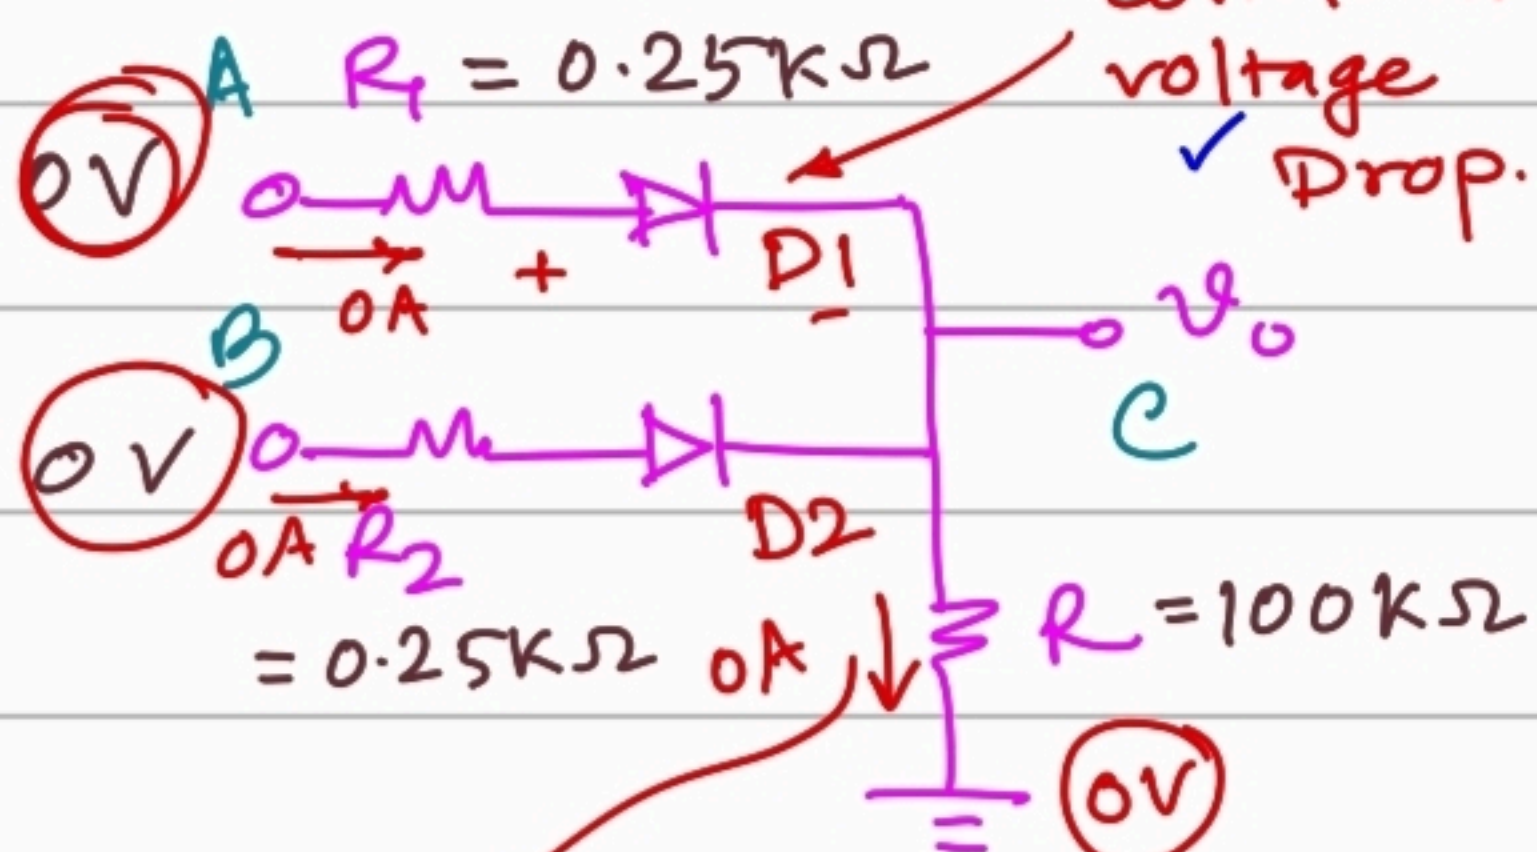 A R₁ = 0.25KΩ
voltage
Drop.
0V
0A + D1
-
B
v₀
C
0V
0A R₂ D2
= 0.25KΩ 0A R = 100KΩ
0V